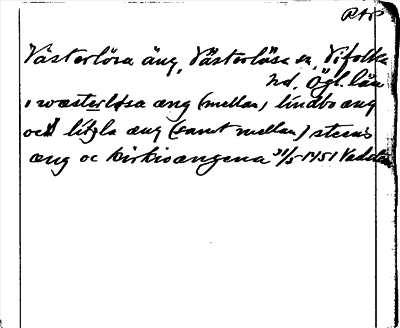 RAP
Västerlösa äng, Västerlösa sn, Vifolka
hd, Ögl. län
i wæsterløsa æng (mellan) lindbo æng
ock litzla æng (samt mellan) stens
æng oc kirkioængena 31/5 1451 Vadstena